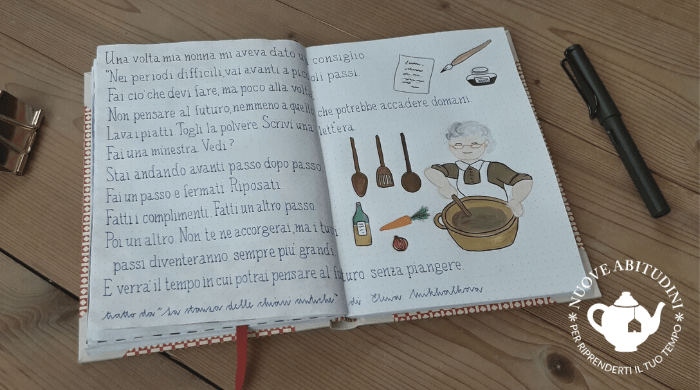 Una volta mia nonna mi aveva dato un consiglio
"Nei periodi difficili, vai avanti a piccoli passi
Fai ciò che devi fare, ma poco alla volta
Non pensare al futuro, nemmeno a quello che potrebbe accadere domani
Lava i piatti Togli la polvere Scrivi una lettera
Fai una minestra Vedi?
Stai andando avanti passo dopo passo
Fai un passo e fermati Riposati
Fatti i complimenti Fatti un altro passo
Poi un altro Non te ne accorgerai, ma i tuoi
passi diventeranno sempre più grandi
E verrà il tempo in cui potrai pensare al futuro senza piangere
tratto da "la stanza delle chiavi antiche" di Elena Mikhalkova
NUOVE ABITUDINI
PER RIPRENDERTI IL TUO TEMPO